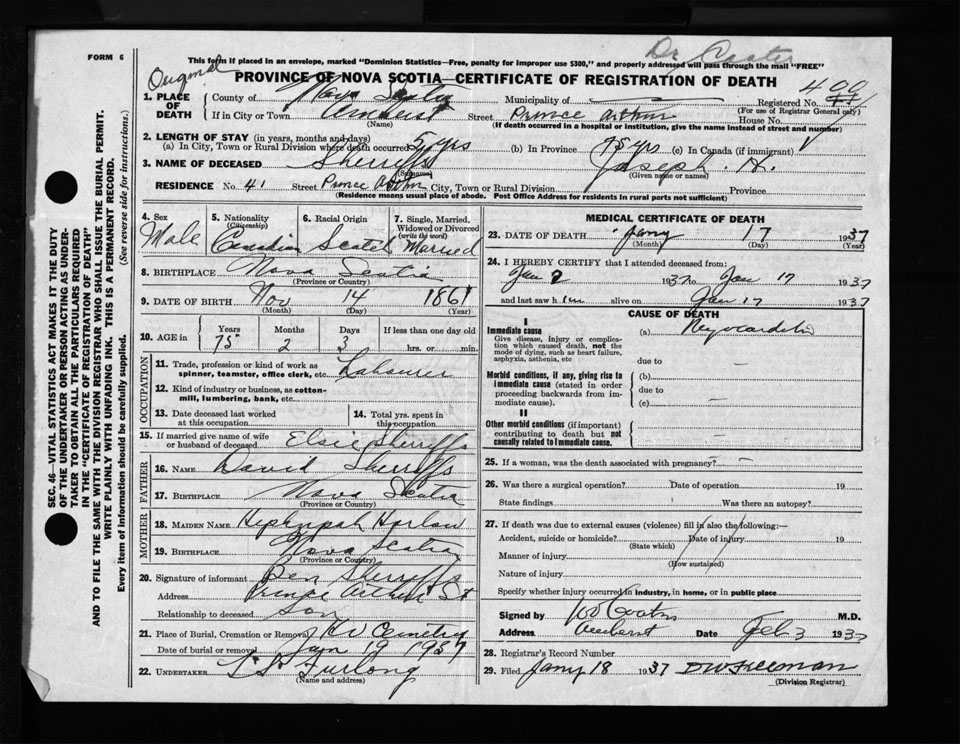 FORM 6
Dr Coates
This form if placed in an envelope, marked "Dominion Statistics—Free, penalty for improper use $300," and properly addressed will pass through the mail "FREE"
Original
PROVINCE OF NOVA SCOTIA—CERTIFICATE OF REGISTRATION OF DEATH
400
1. PLACE OF DEATH { County of Nova Scotia Municipality of — Registered No.
(For use of Registrar General only)
If in City or Town Amherst Street Prince Arthur House No.
(Name) (If death occurred in a hospital or institution, give the name instead of street and number)
2. LENGTH OF STAY (in years, months and days)
(a) In City, Town or Rural Division where death occurred 5 yrs (b) In Province 75 yrs (c) In Canada (if immigrant)
3. NAME OF DECEASED Sherriffs Joseph H.
(Surname) (Given name or names)
RESIDENCE No. 41 Street Prince Arthur City, Town or Rural Division Province
(Residence means usual place of abode. Post Office Address for residents in rural parts not sufficient)
4. Sex Male
5. Nationality (Citizenship) Canadian
6. Racial Origin Scotch
7. Single, Married, Widowed or Divorced (write the word) Married
8. BIRTHPLACE Nova Scotia
(Province or Country)
9. DATE OF BIRTH Nov 14 1861
(Month) (Day) (Year)
10. AGE in { Years 75 Months 2 Days 3 If less than one day old
hrs. or min.
OCCUPATION
11. Trade, profession or kind of work as spinner, teamster, office clerk, etc. Labourer
12. Kind of industry or business, as cotton-mill, lumbering, bank, etc.
13. Date deceased last worked at this occupation
14. Total yrs. spent in this occupation
15. If married give name of wife or husband of deceased Elsie Sherriffs
FATHER
16. NAME David Sherriffs
17. BIRTHPLACE Nova Scotia
(Province or Country)
MOTHER
18. MAIDEN NAME Harlow
19. BIRTHPLACE Nova Scotia
(Province or Country)
20. Signature of informant Ben Sherriffs
Address Prince Arthur St
Relationship to deceased Son
21. Place of Burial, Cremation or Removal Cemetery
Date of burial or removal Jan 19 1937
22. UNDERTAKER Furlong
(Name and address)
MEDICAL CERTIFICATE OF DEATH
23. DATE OF DEATH Jany 17 1937
(Month) (Day) (Year)
24. I HEREBY CERTIFY that I attended deceased from:
Jan 2 1937 to Jan 17 1937
and last saw him alive on Jan 17 1937
CAUSE OF DEATH
I
Immediate cause (a) Myocarditis
Give disease, injury or complication which caused death, not the mode of dying, such as heart failure, asphyxia, asthenia, etc
due to —
Morbid conditions, if any, giving rise to immediate cause (stated in order proceeding backwards from immediate cause).
(b) —
due to
(c) —
II
Other morbid conditions (if important) contributing to death but not causally related to immediate cause.
25. If a woman, was the death associated with pregnancy? — —
26. Was there a surgical operation? — Date of operation 19
State findings Was there an autopsy?
27. If death was due to external causes (violence) fill in also the following:—
Accident, suicide or homicide? Date of injury 19
(State which)
Manner of injury
(How sustained)
Nature of injury
Specify whether injury occurred in industry, in home, or in public place
Signed by Coates M.D.
Address Amherst Date Feb 3 1937
28. Registrar's Record Number
29. Filed Jany 18 1937 DW Freeman
(Division Registrar)
SEC. 46—VITAL STATISTICS ACT MAKES IT THE DUTY
OF THE UNDERTAKER OR PERSON ACTING AS UNDER-
TAKER TO OBTAIN ALL THE PARTICULARS REQUIRED
IN THE "CERTIFICATE OF REGISTRATION OF DEATH"
AND TO FILE THE SAME WITH THE DIVISION REGISTRAR WHO SHALL ISSUE THE BURIAL PERMIT.
WRITE PLAINLY WITH UNFADING INK. THIS IS A PERMANENT RECORD.
Every item of information should be carefully supplied. (See reverse side for instructions.)